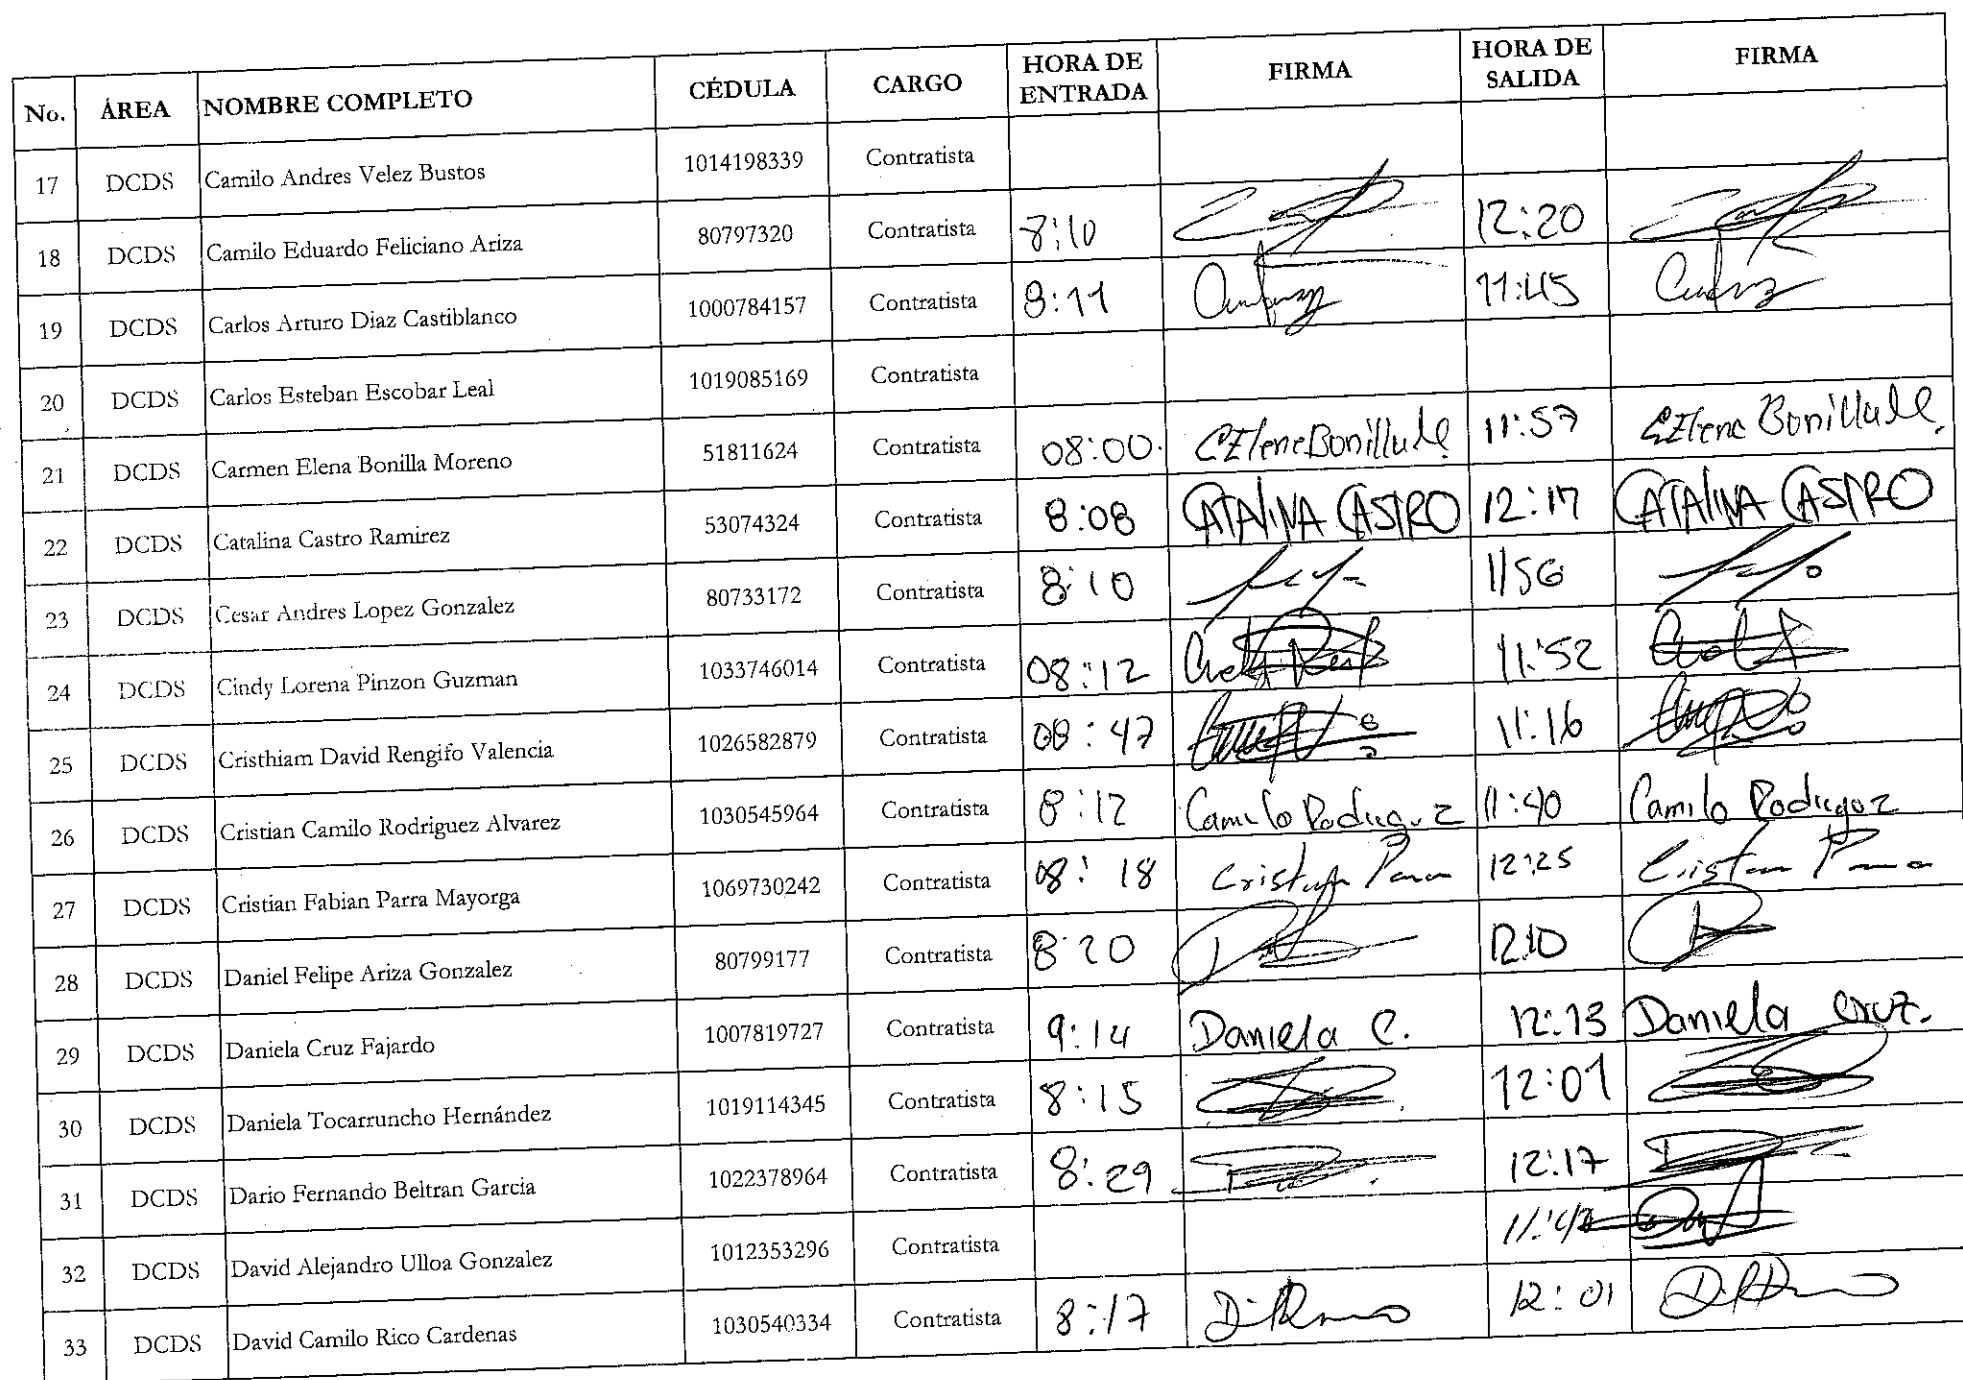 No. ÁREA NOMBRE COMPLETO CÉDULA CARGO HORA DE ENTRADA FIRMA HORA DE SALIDA FIRMA
17 DCDS Camilo Andres Velez Bustos 1014198339 Contratista
18 DCDS Camilo Eduardo Feliciano Ariza 80797320 Contratista 8:10 12:20
19 DCDS Carlos Arturo Diaz Castiblanco 1000784157 Contratista 8:11 11:45
20 DCDS Carlos Esteban Escobar Leal 1019085169 Contratista
21 DCDS Carmen Elena Bonilla Moreno 51811624 Contratista 08:00. 11:57
22 DCDS Catalina Castro Ramirez 53074324 Contratista 8:08 CATALINA CASTRO 12:17 CATALINA CASTRO
23 DCDS Cesar Andres Lopez Gonzalez 80733172 Contratista 8:10 1156
24 DCDS Cindy Lorena Pinzon Guzman 1033746014 Contratista 08:12 11:52
25 DCDS Cristhiam David Rengifo Valencia 1026582879 Contratista 08:47 11:16
26 DCDS Cristian Camilo Rodriguez Alvarez 1030545964 Contratista 8:12 Camilo Rodriguez 11:40 Camilo Rodriguez
27 DCDS Cristian Fabian Parra Mayorga 1069730242 Contratista 08:18 Cristian Parra 12:25 Cristian Parra
28 DCDS Daniel Felipe Ariza Gonzalez 80799177 Contratista 8:20 12:10
29 DCDS Daniela Cruz Fajardo 1007819727 Contratista 9:14 Daniela C. 12:13 Daniela Cruz.
30 DCDS Daniela Tocarruncho Hernández 1019114345 Contratista 8:15 12:01
31 DCDS Dario Fernando Beltran Garcia 1022378964 Contratista 8:29 12:17
32 DCDS David Alejandro Ulloa Gonzalez 1012353296 Contratista
33 DCDS David Camilo Rico Cardenas 1030540334 Contratista 8:17 12:01